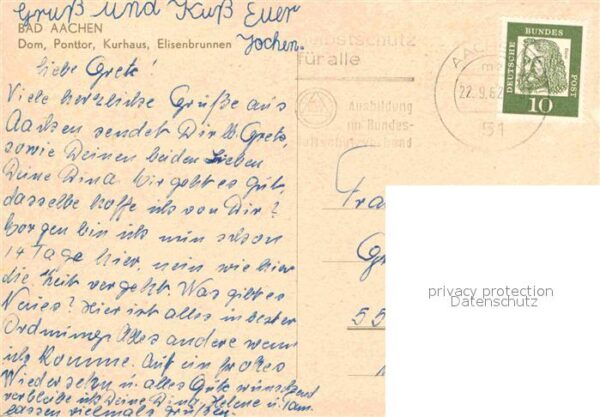 Gruß und Kuß Euer
Jochen.
BAD AACHEN
Dom, Ponttor, Kurhaus, Elisenbrunnen
Liebe Grete!
Viele herzliche Grüße aus
Aachen sendet Dir lb. Grete,
sowie Deinen beiden Lieben
Deine Dina. Mir geht es gut,
dasselbe hoffe ich von Dir?
Morgen bin ich nun schon
14 Tage hier, nein wie hier
die Zeit vergeht. Was gibt es
Neues? Hier ist alles in bester
Ordnung. Alles andere wenn
ich komme. Auf ein frohes
Wiedersehn u. alles Gute wünschend
verbleibe ich Deine Dina, Helene u. Fam.
lassen vielmals grüßen.
Selbstschutz
für alle
Ausbildung
im Bundes-
luftschutzverband
AACHEN
22.9.62
51
DEUTSCHE BUNDES POST
10
Fra
Gr
55
privacy protection
Datenschutz